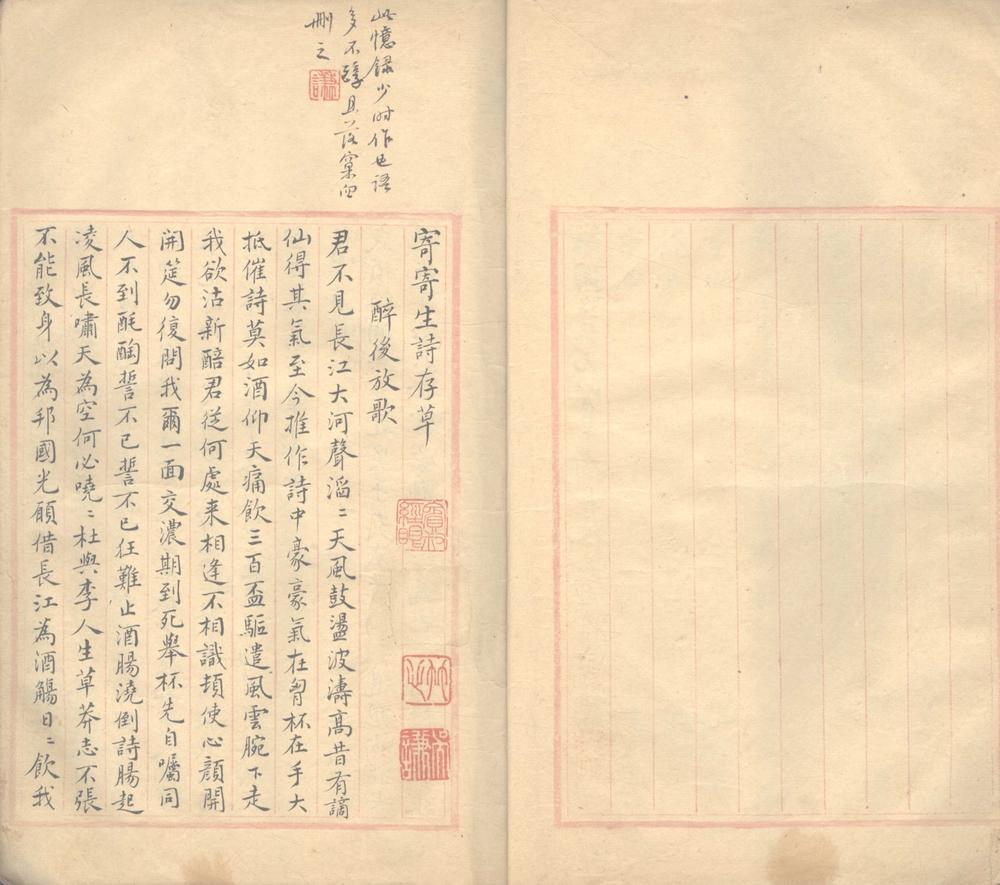 此憶錄少时作也語
多不醇且落窠臼
刪之
謙
寄寄生詩存草
醉後放歌
君不見長江大河聲滔〻天風鼓盪波濤高昔有謫
仙得其氣至今推作詩中豪豪氣在胷杯在手大
抵催詩莫如酒仰天痛飲三百盃驅遣風雲腕下走
我欲沽新醅君從何處来相逢不相識頓使心顏開
開筵勿復問我爾一面交濃期到死舉杯先自囑同
人不到酕醄誓不已誓不已狂難止酒腸澆倒詩腸起
凌風長嘯天為空何必嘵〻杜與李人生草莽志不張
不能致身以為邦國光願借長江為酒觴日〻飲我